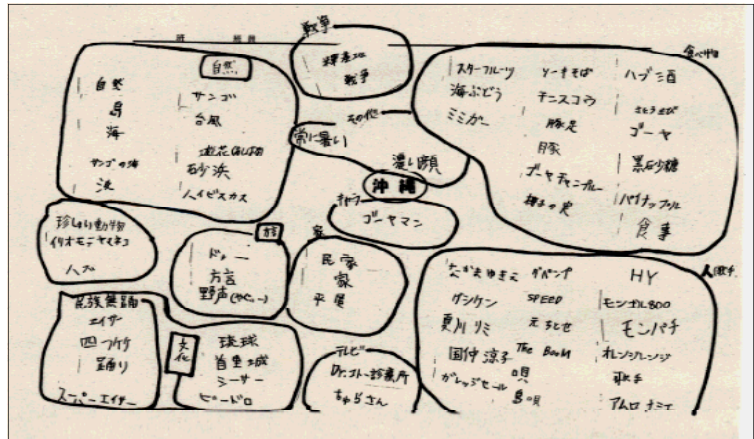 戦争
戦争
自然
自然
島
海
サンゴの海
波
サンゴ
台風
砂浜
ハイビスカス
その他
常に暑い
濃い顔
沖縄
キャラ
ゴーヤマン
食べ物
スターフルーツ
海ぶどう
ミミガー
ソーキそば
チンスコウ
豚足
豚
ゴーヤチャンプルー
椰子の実
ハブ酒
さとうきび
ゴーヤ
黒砂糖
パイナップル
食事
珍しい動物
イリオモテヤマネコ
ハブ
方言
家
民家
家
平屋
民族舞踊
エイサー
四つ竹
踊り
スーパーエイサー
文化
琉球
首里城
シーサー
ビードロ
テレビ
Dr.コトー診療所
ちゅらさん
夏川リミ
国仲涼子
ガレッジセール
ダパンプ
SPEED
元ちとせ
The Boom
唄
島唄
HY
モンゴル800
モンパチ
オレンジレンジ
歌手
アムロナミエ